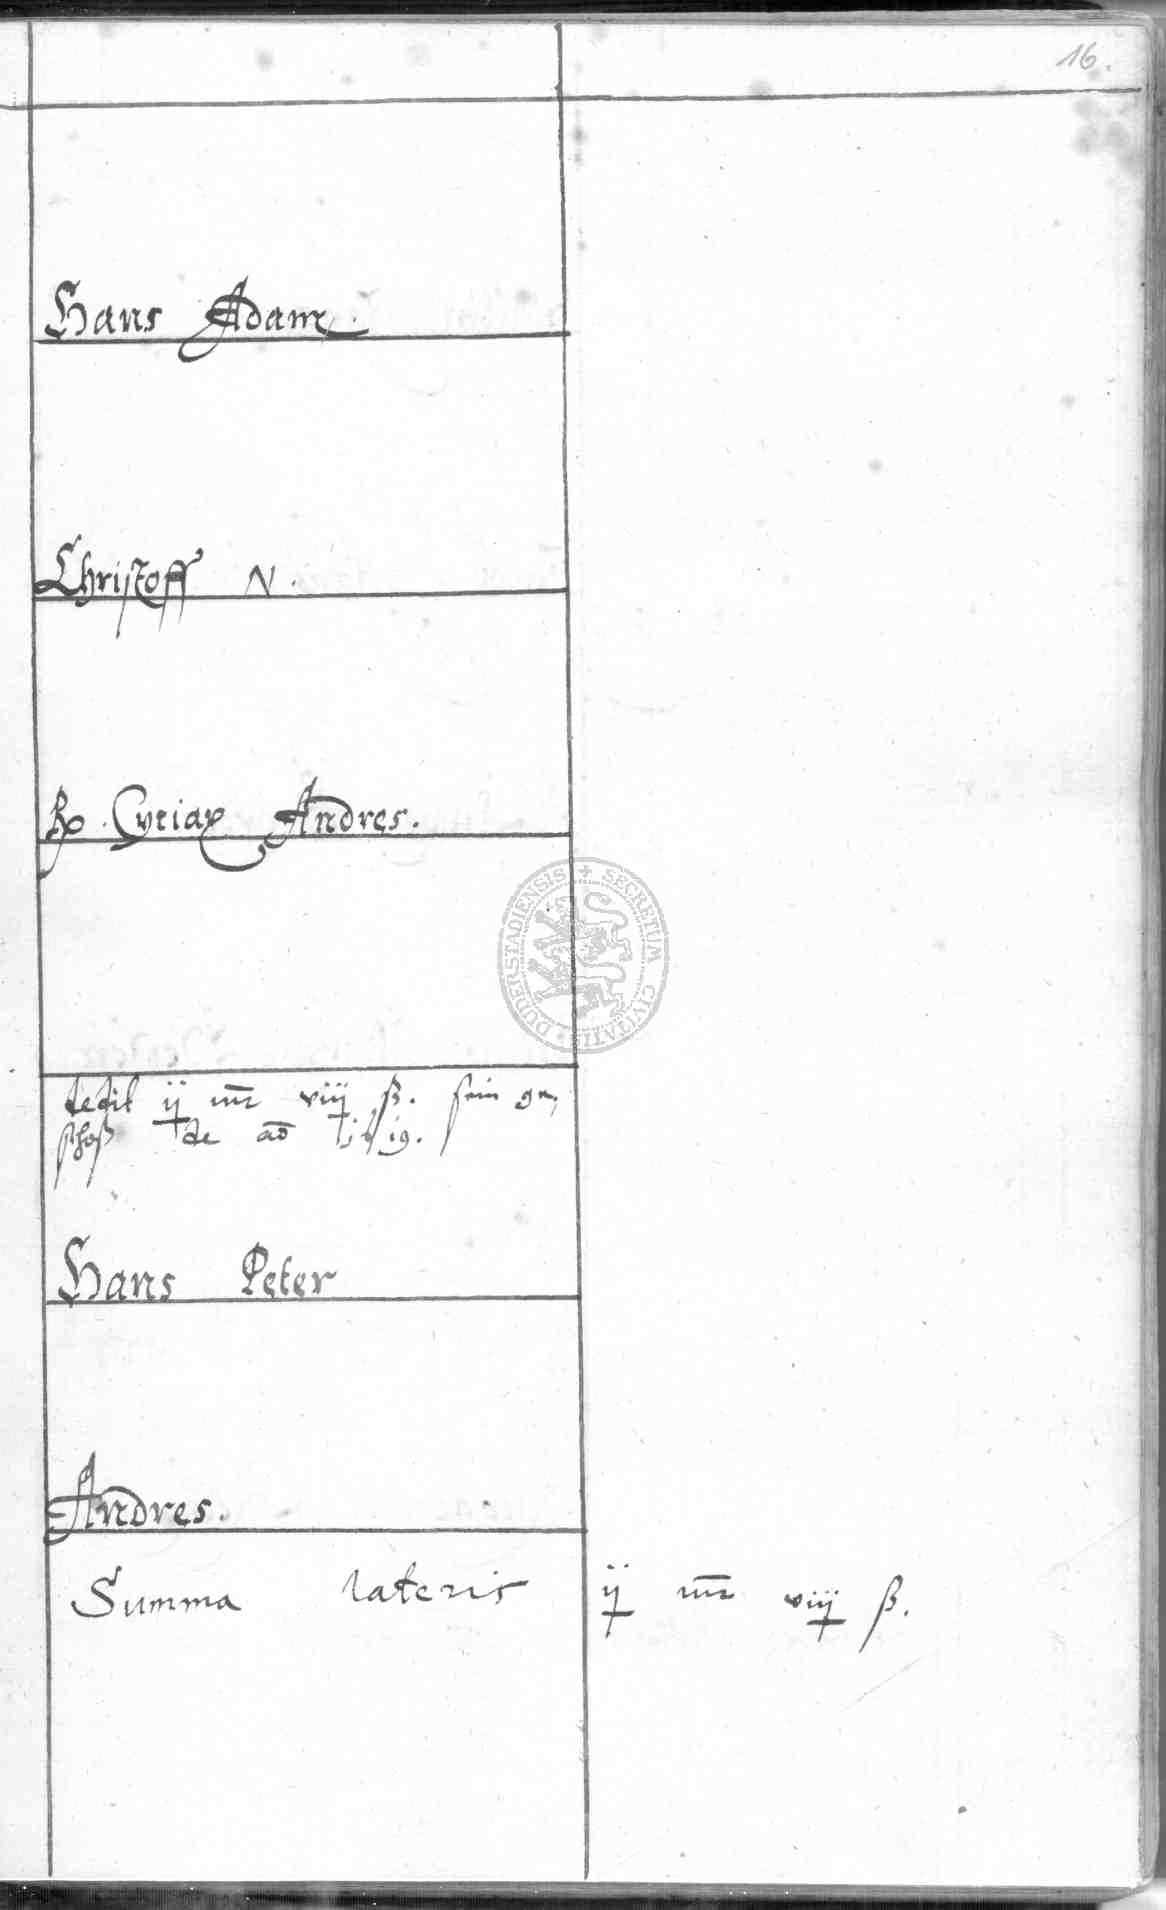 16.
Hans Adam.
Christoff N.
Cyriax Andres.
SECRETUM CIVITATIS DUDERSTADIENSIS
dedit ij mr viij ß. sein ge,
schoß de ao
Hans Peter
Andres.
Summa lateris ij mr viij ß.